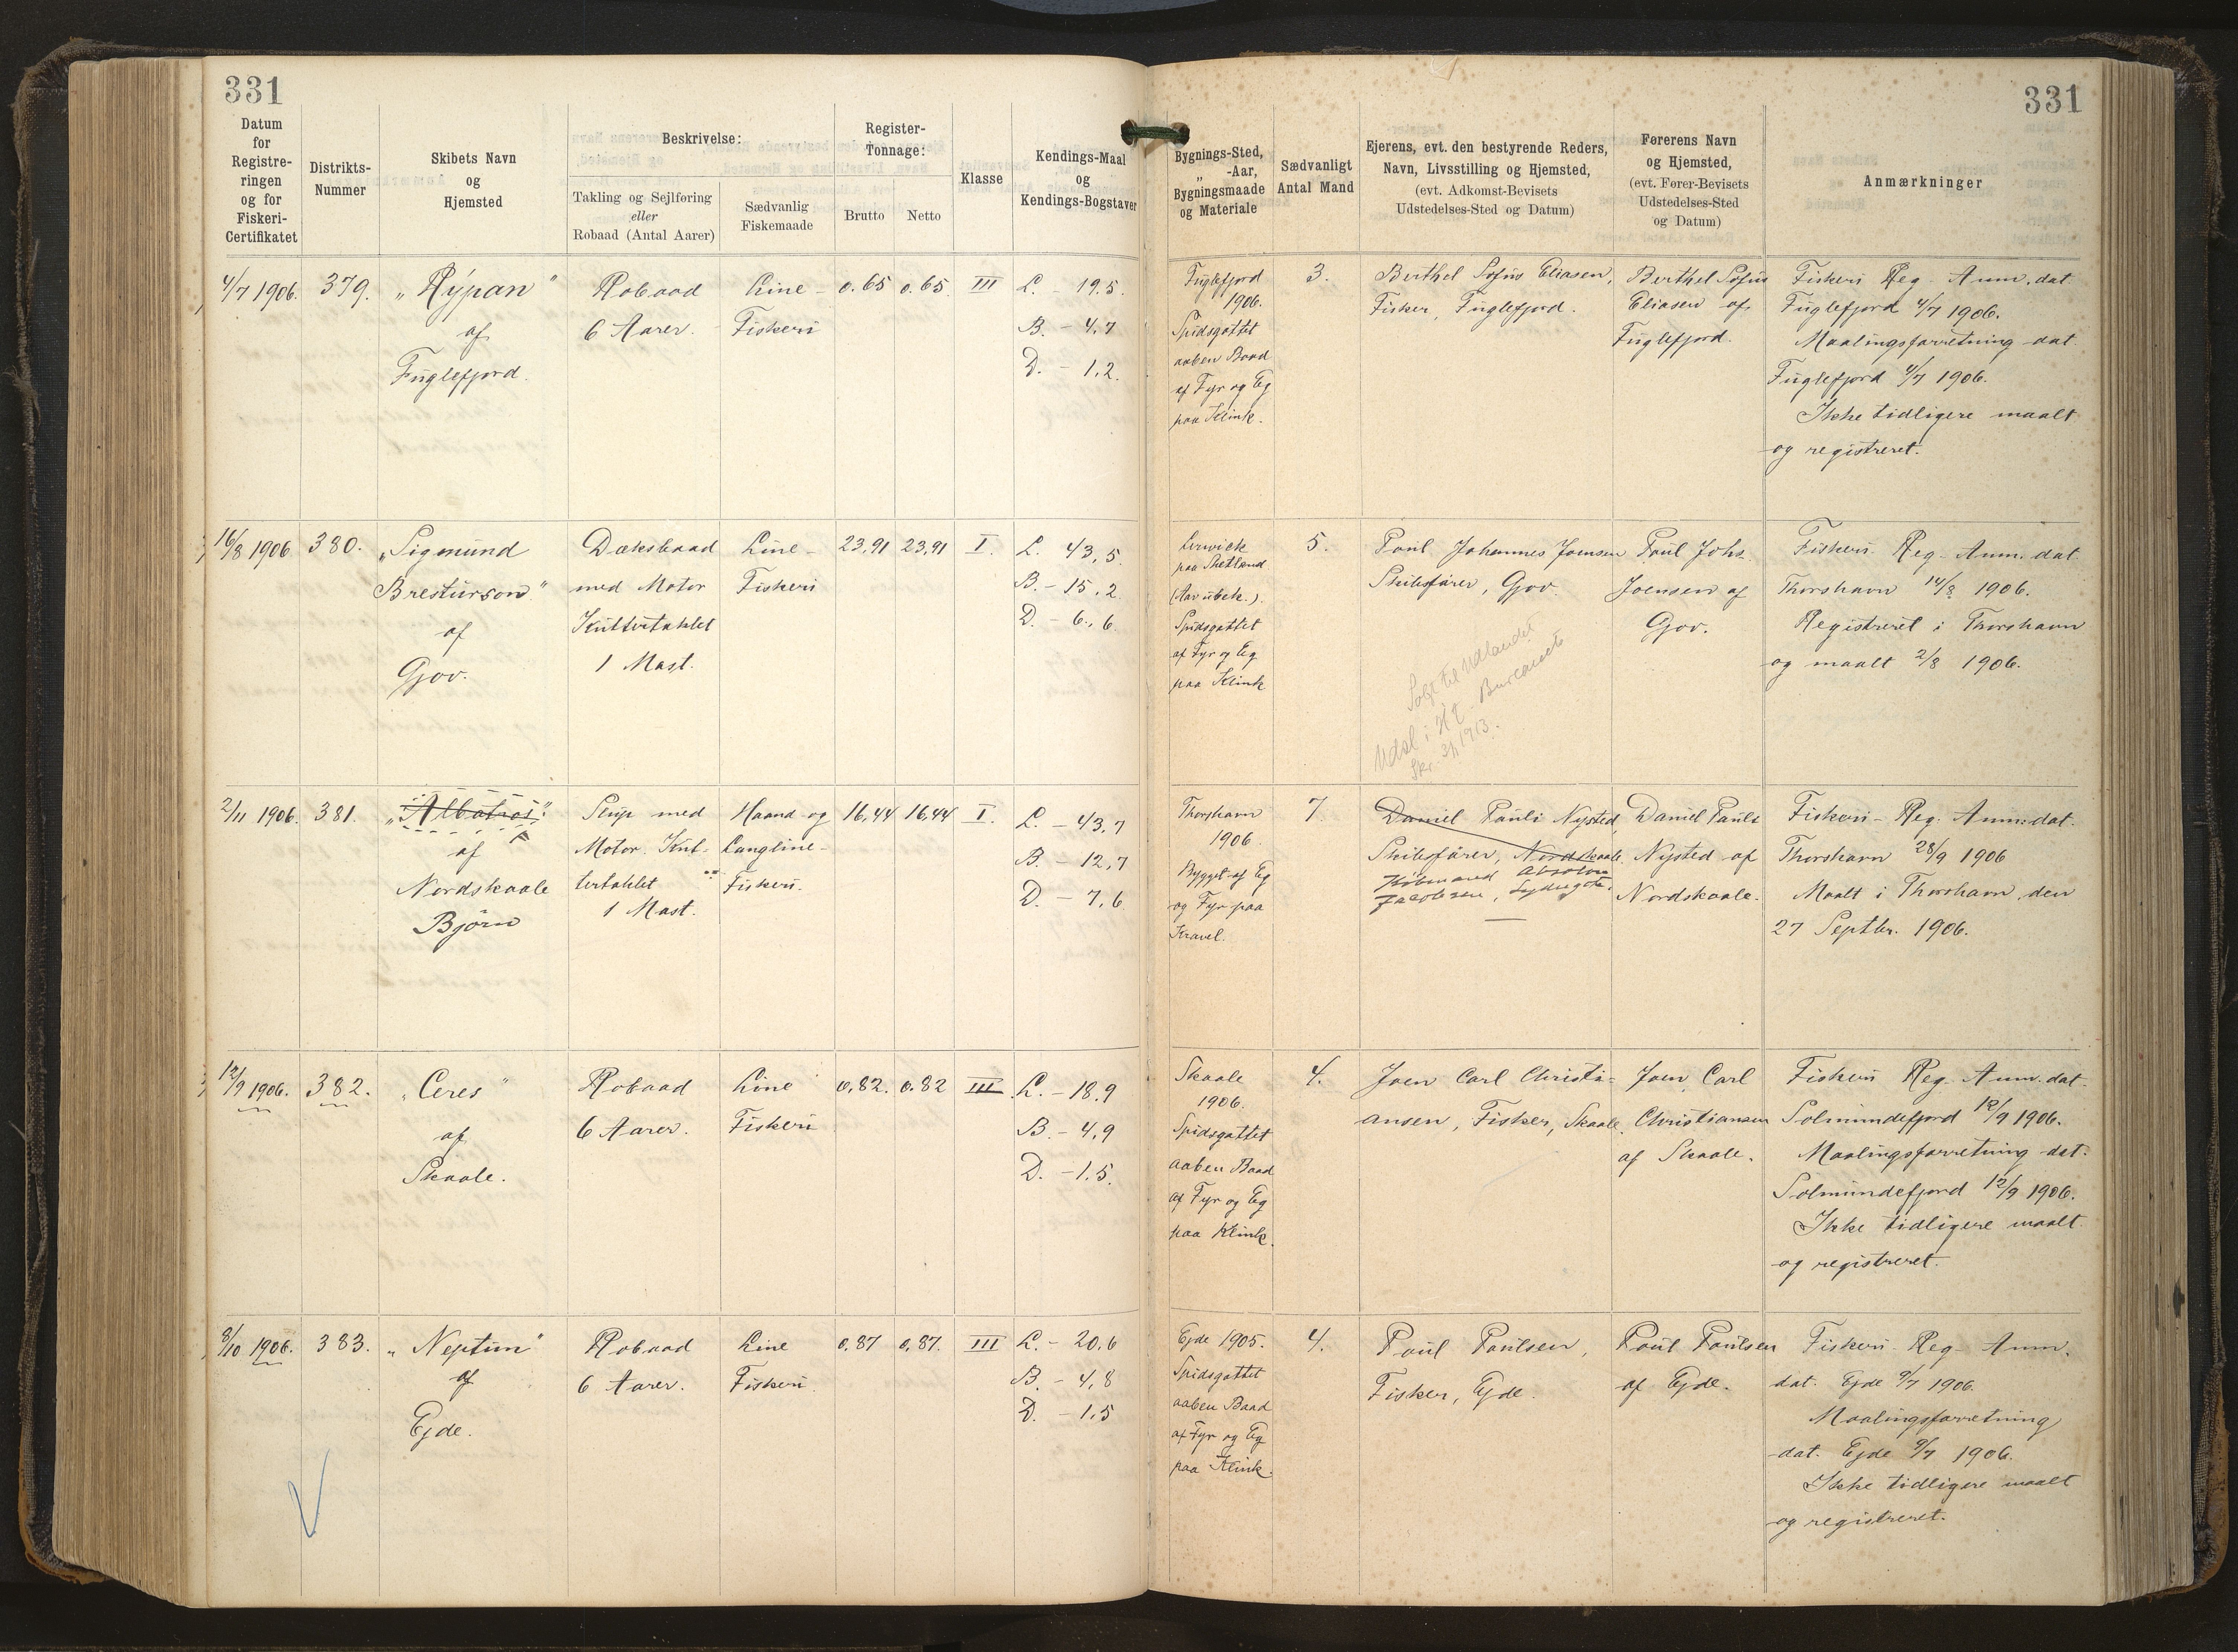 331
331
Datum for Registreringen og for Fiskeri-Certifikatet
Distrikts-Nummer
Skibets Navn og Hjemsted
Beskrivelse:
Takling og Sejlføring eller Robaad (Antal Aarer)
Sædvanlig Fiskemaade
Register-Tonnage:
Brutto
Netto
Klasse
Kendings-Maal og Kendings-Bogstaver
Bygnings-Sted, „ -Aar, Bygningsmaade og Materiale
Sædvanligt Antal Mand
Ejerens, evt. den bestyrende Reders, Navn, Livsstilling og Hjemsted, (evt. Adkomst-Bevisets Udstedelses-Sted og Datum)
Førerens Navn og Hjemsted, (evt. Fører-Bevisets Udstedelses-Sted og Datum)
Anmærkninger
4/7 1906.
379.
„Rýpan"
af
Fuglefjord.
Robaad
6 Aarer.
Line-
Fiskeri
0.65
0.65
III
L. - 19.5.
B. - 4,7
D. - 1,2.
Fuglefjord
1906.
Spidsgattet
aaben Baad
af Fyr og Eg
paa Klink.
3.
Berthel Sofus Eliasen,
Fisker, Fuglefjord.
Berthel Sofus
Eliasen af
Fuglefjord.
Fiskeri Reg. Anm. dat.
Fuglefjord 4/7 1906.
Maalingsforretning dat.
Fuglefjord 4/7 1906.
Ikke tidligere maalt
og registreret.
16/8 1906
380.
„Sigmund
Bresturson"
af
Gjov.
Dæksbaad
med Motor
Kuttertaklet
1 Mast.
Line-
Fiskeri
23,91
23,91
I.
L. 43,5.
B. - 15,2
D. - 6,6.
Lerwick
paa Shetland
(Aar ubek.).
Spidsgattet
af Fyr og Eg
paa Klink
5.
Poul Johannes Joensen
Skibsfører, Gjov.
Solgt til Udlandet
Udsl. i - Bureauets
Skr. 3/1 1913.
Poul Johs.
Joensen af
Gjov.
Fiskeri Reg. Anm. dat
Thorshavn 14/8 1906.
Registreret i Thorshavn
og maalt 2/8 1906.
2/11 1906.
381.
„Albatros"
af
Nordskaale
Björn
Slup med
Motor. Kut-
tertaklet
1 Mast.
Haand og
Langline-
Fiskeri.
16,44
16,44
I.
L. - 43,7
B. - 12,7
D. - 7,6
Thorshavn
1906.
Bygget af Eg
og Fyr paa
Kravel.
7.
Daniel Pauli Nysted,
Skibsfører, Nordskaale.
Købmand Absalon
Jacobsen, Sydregøta.
Daniel Pauli
Nysted af
Nordskaale.
Fiskeri- Reg. Anm. dat.
Thorshavn 28/9 1906
Maalt i Thorshavn den
27 Septbr. 1906.
12/9 1906.
382.
„Ceres"
af
Skaale.
Robaad
6 Aarer.
Line
Fiskeri
0,82.
0.82
III
L. - 18.9
B. - 4,9
D. - 1.5.
Skaale
1906.
Spidsgattet
aaben Baad
af Fyr og Eg
paa Klink.
4.
Joen Carl Christi-
ansen, Fisker, Skaale.
Joen Carl
Christiansen
af Skaale.
Fiskeri Reg. Anm. dat.
Solmundefjord 12/9 1906.
Maalingsforretning dat.
Solmundefjord 12/9 1906.
Ikke tidligere maalt
og registreret.
8/10 1906.
383.
„Neptun"
af
Ejde.
Robaad
6 Aarer.
Line
Fiskeri
0,87
0,87.
III
L. - 20,6
B. - 4,8
D. - 1,5
Ejde 1905.
Spidsgattet
aaben Baad
af Fyr og Eg
paa Klink.
4.
Poul Poulsen,
Fisker, Ejde.
Poul Poulsen
af Ejde.
Fiskeri Reg. Anm.
dat. Ejde 9/7 1906.
Maalingsforretning
dat. Ejde 9/7 1906.
Ikke tidligere maalt
og registreret.